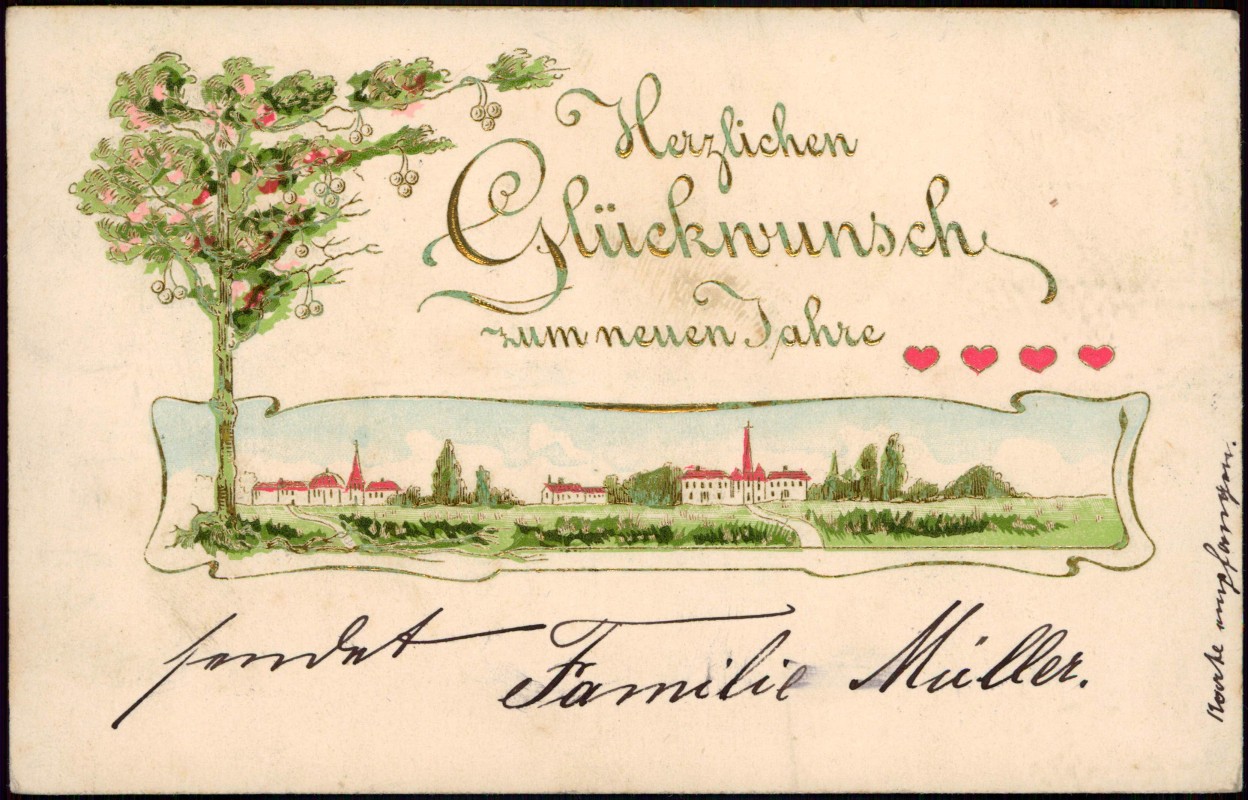 Herzlichen
Glückwunsch
zum neuen Jahre
sendet Familie Müller.
Karte empfangen.